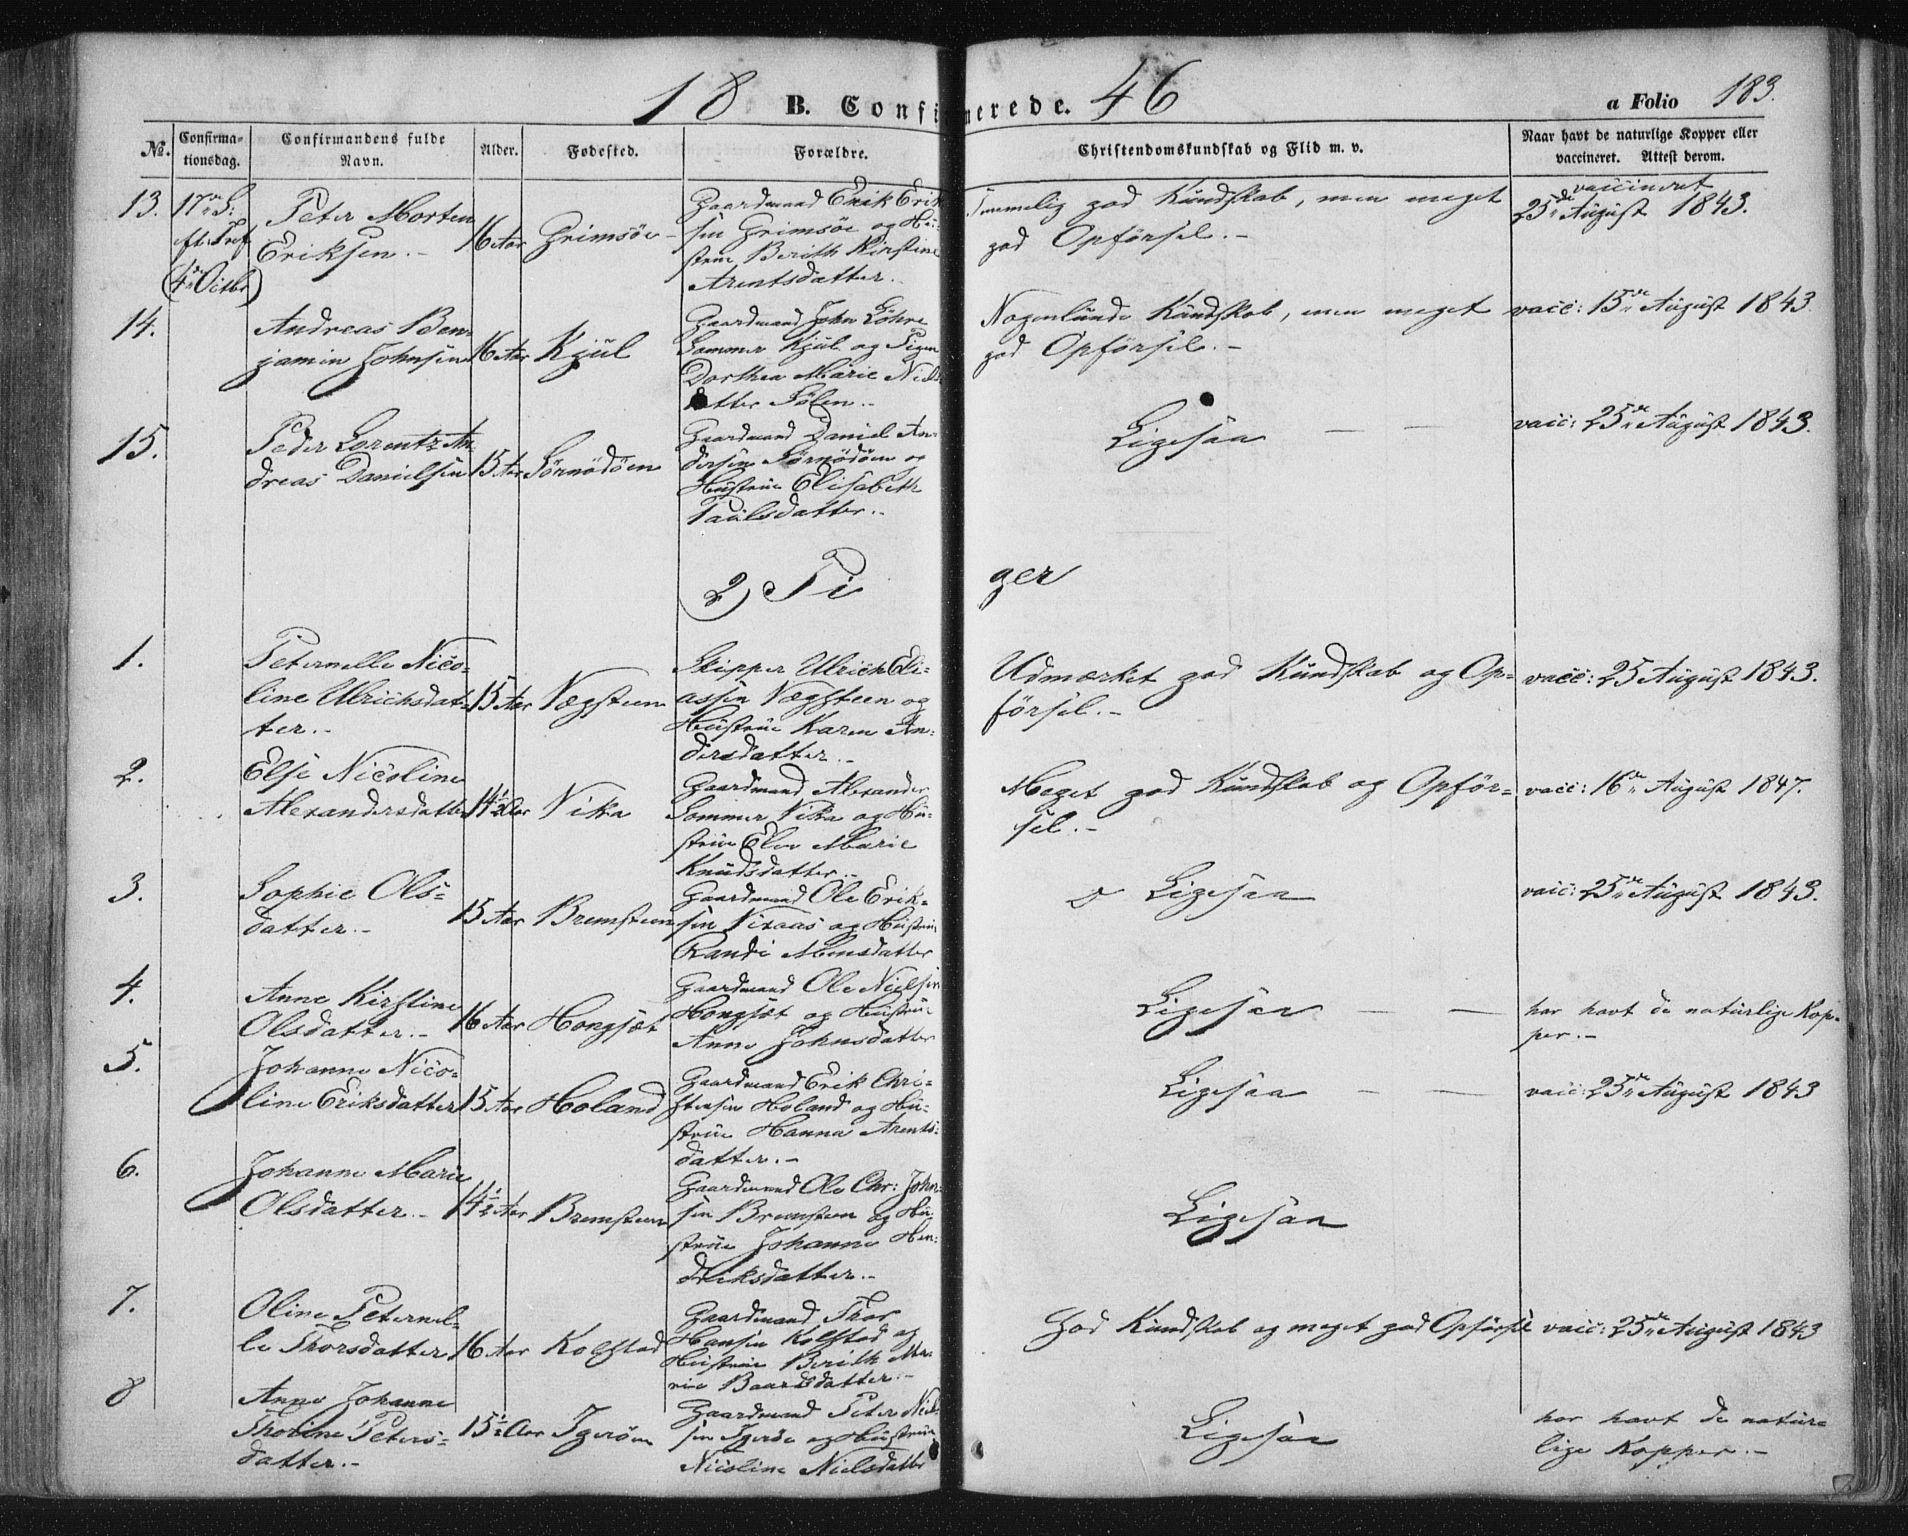 18 B. Confirmerede. 46
a Folio 183.
No.
Confirma-
tionsdag.
Confirmandens fulde
Navn.
Alder.
Fødested.
Forældre.
Christendomskundskab og Flid m. v.
Naar havt de naturlige Kopper eller
vaccineret. Attest derom.
13. 17de S:
eft. Tref
(4de Octbr)
Peter Morten
Eriksen.-
16 Aar
Grimsöe
Gaardmand Erik Erik
sen Grimsöe og Hu-
strue Berith Kirstine
Arentsdatter.
god Kundskab, men meget
god Opförsel.-
vaccineret
25de August 1843.
14.
Andreas Ben-
jamin Johnsen
16 Aar
Kjul
Gaardmand John Göhre
Sommer Kjul og Pigen
Dorthea Marie Niels
datter Sölen.-
Nogenlunde Kundskab, men meget
god Opförsel.-
vacc: 15de August 1843
15.
Peder Lorentz An-
dreas Danielsen
15 Aar
Sörnödöen
Gaardmand Daniel An-
dersen Sörnödöen og
Hustrue Elisabeth
Paulsdatter.
Ligesaa
vacc: 25de August 1843.
2) Pi ger
1.
Peternelle Nico-
line Ulrichsdat-
ter.-
15 Aar
Vægsteen
Skipper Ulrich Eli-
assen Vægsteen og
Hustrue Karen An-
dersdatter.-
Udmærket god Kundskab og Op-
försel.-
vacc: 25 August 1843.
2.
Else Nicoline
Alexandersdatter
14½ Aar
Vika
Gaardmand Alexander
Sommer Vika og Hu-
strue Elen Marie
Knudsdatter.-
Meget god Kundskab og Opför-
sel.-
vacc: 16de August 1847.
3.
Sophie Ols-
datter.-
15 Aar
Bremsteen
Gaardmand Ole Erik-
sen Vixaas og Hustrue
Randi Monsdatter
Ligesaa
vacc: 25de August 1843.
4.
Anne Kirstine
Olsdatter.-
16 Aar
Hongsæt
Gaardmand Ole Nielsen
Hongsæt og Hustrue
Anne Johnsdatter
Ligesaa
har havt de naturlige Kop-
per.-
5.
Johanne Nico-
line Eriksdatter
15 Aar
Holand
Gaardmand Erik Chri-
stensen Holand og Hu-
strue Hanna Arents-
datter.-
Ligesaa
vacc: 25de August 1843
6.
Johanne Marie
Olsdatter.-
14½ Aar
Bremsteen
Gaardmand Ole Chr: John-
sen Bremsteen og Hu-
strue Johanne Hen-
driksdatter.-
Ligesaa
7.
Oline Peternel-
le Thorsdatter
16 Aar
Kolstad
Gaardmand Thor
Hansen Kolstad og
Hustrue Berith Ma-
rie Baardsdatter.-
God Kundskab og meget god Opförsel
vacc: 25de August 1843
8
Anne Johanne
Thorine Peters-
datter.-
15½ Aar
Igeröen
Gaardmand Peter Niel-
sen Igeröe og Hustrue
Nicoline Nielsdatter
Ligesaa
har havt de natur-
lige Kopper.-